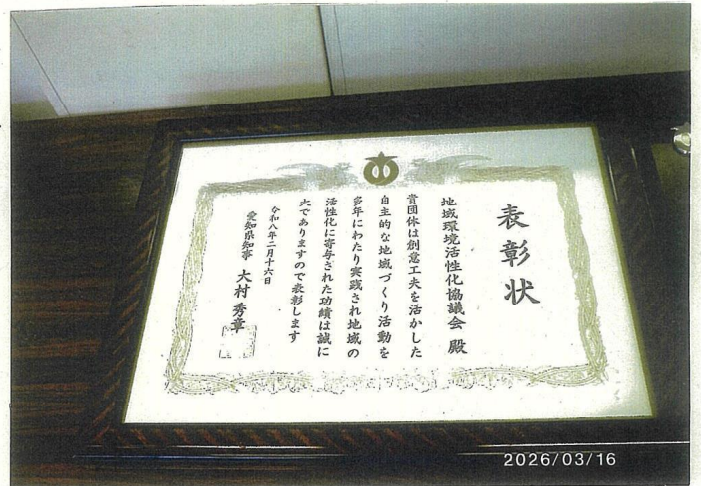 表彰状
地域環境活性化協議会 殿
貴団体は創意工夫を活かした
自主的な地域づくり活動を
多年にわたり実践され地域の
活性化に寄与された功績は誠に
大でありますので表彰します
令和八年二月十六日
愛知県知事 大村秀章
2026/03/16